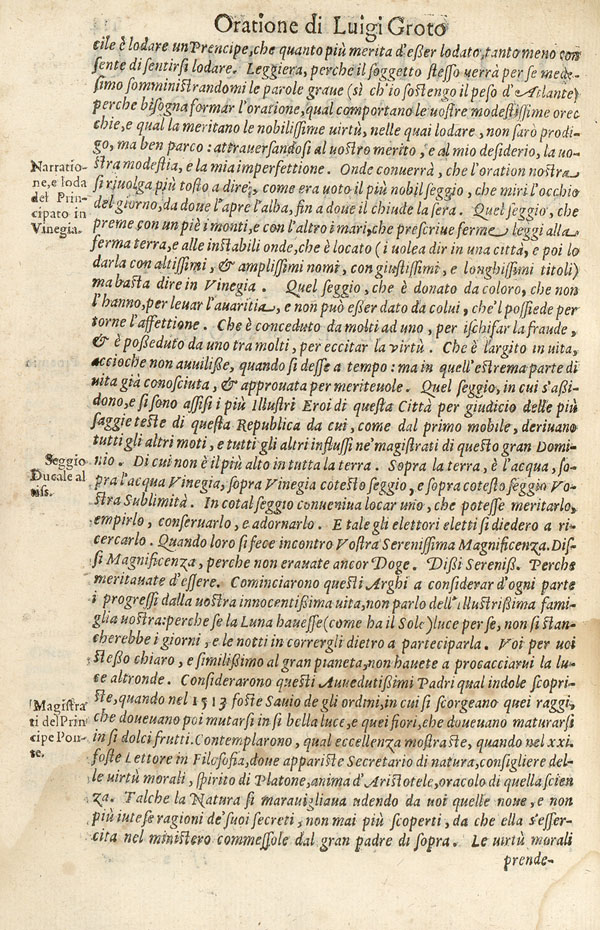 Oratione di Luigi Groto
cile è lodare un Prencipe, che quanto più merita d'eßer lodato, tanto meno con
sente di sentirsi lodare. Leggiera, perche il soggetto stesso verrà per se mede-
simo somministrandomi le parole graue (sì ch'io sostengo il peso d'Atlante)
perche bisogna formar l'oratione, qual comportano le vostre modestissime orec
chie, e qual la meritano le nobilissime virtù, nelle quai lodare, non sarò prodi-
go, ma ben parco: attrauersandosi al vostro merito, e al mio desiderio, la vo-
stra modestia, e la mia imperfettione. Onde conuerrà, che l'oration nostra
si riuolga più tosto a dire, come era voto il più nobil seggio, che miri l'occhio
del giorno, da doue l'apre l'alba, fin a doue il chiude la sera. Quel seggio, che
preme con un piè i monti, e con l'altro i mari, che prescriue ferme leggi alla
ferma terra, e alle instabili onde, che è locato (i volea dir in una città, e poi lo
darla con altissimi, & amplissimi nomi, con giustissimi, e longhissimi titoli)
ma basta dire in Vinegia. Quel seggio, che è donato da coloro, che non
l'hanno, per leuar l'auaritia, e non può eßer dato da colui, che'l possiede per
torne l'affettione. Che è conceduto da molti ad uno, per ischifar la fraude,
& è poßeduto da uno tra molti, per eccitar la virtù. Che è largito in vita,
accioche non auuiliße, quando si desse a tempo: ma in quell'estrema parte di
vita già conosciuta, & approuata per meriteuole. Quel seggio, in cui s'aßi-
dono, e si sono assisi i più Illustri Eroi di questa Città per giudicio delle più
saggie teste di questa Republica da cui, come dal primo mobile, deriuano
tutti gli altri moti, e tutti gli altri influssi ne' magistrati di questo gran Domi-
nio. Di cui non è il più alto in tutta la terra. Sopra la terra, è l'acqua, so-
pra l'acqua Vinegia, sopra Vinegia cotesto seggio, e sopra cotesto seggio Vo-
stra Sublimità. In cotal seggio conueniua locar uno, che potesse meritarlo,
empirlo, conseruarlo, e adornarlo. E tale gli elettori eletti si diedero a ri-
cercarlo. Quando loro si fece incontro Vostra Serenissima Magnificenza. Dis-
si Magnificenza, perche non erauate ancor Doge. Dißi Sereniß. Perche
meritauate d'essere. Cominciarono questi Arghi a considerar d'ogni parte
i progressi dalla vostra innocentißima vita, non parlo dell'Illustrißima fami-
glia vostra: perche se la Luna hauesse (come ha il Sole) luce per se, non si stan-
cherebbe i giorni, e le notti in corrergli dietro a participarla. Voi per voi
steßo chiaro, e similißimo al gran pianeta, non hauete a procacciarui la lu-
ce altronde. Considerarono questi Auuedutißimi Padri qual indole scopri-
ste, quando nel 1513 foste Sauio de gli ordini, in cui si scorgeano quei raggi,
che doueuano poi mutarsi in sì bella luce, e quei fiori, che doueuano maturarsi
in sì dolci frutti. Contemplarono, qual eccellenza mostraste, quando nel xxi.
foste Lettore in Filosofia, doue appariste Secretario di natura, consigliere del-
le virtù morali, spirito di Platone, anima d'Aristotele, oracolo di quella scien
za. Talche la Natura si marauigliaua udendo da voi quelle noue, e non
più intese ragioni de' suoi secreti, non mai più scoperti, da che ella s'esser-
cita nel ministero commessole dal gran padre di sopra. Le virtù morali
prende-
Narratio-
ne, e loda
del Prin-
cipato in
Vinegia.
Seggio
Ducale al
tiss.
Magistra
ti del Prin
cipe Pon-
te.